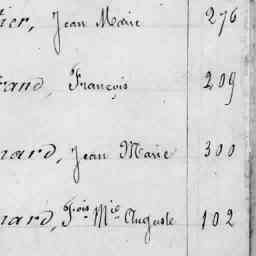 tier, Jean Marie 276
rand, François 209
nard, Jean Marie 300
nard, Fois Mie Auguste 102